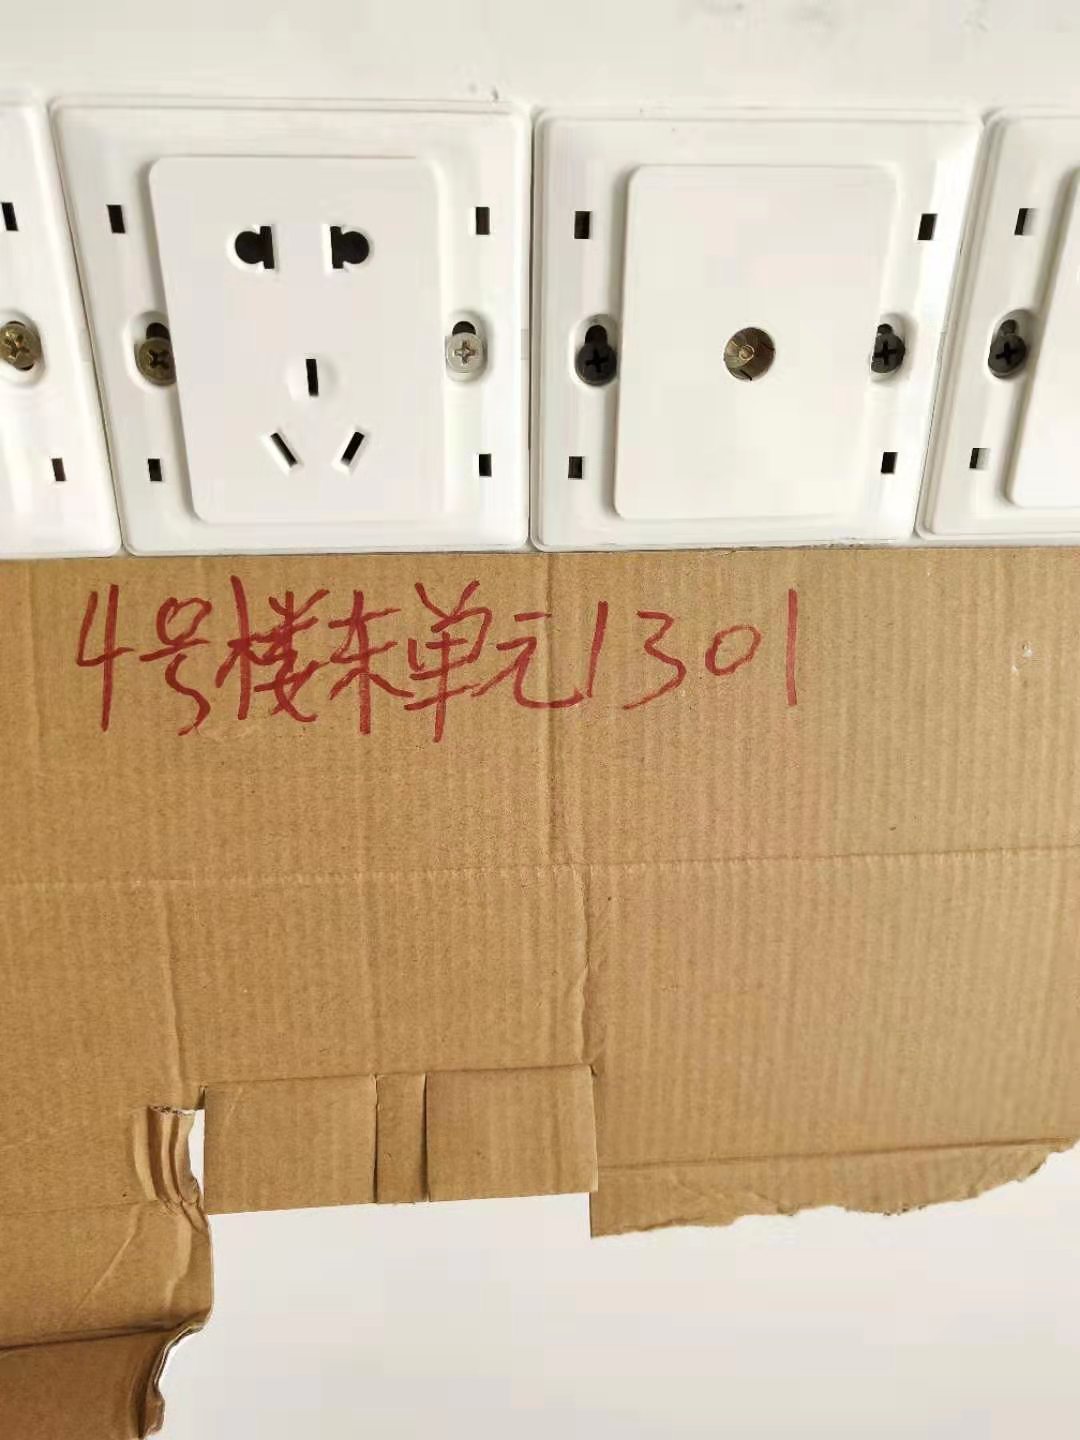 4号楼东单元1301